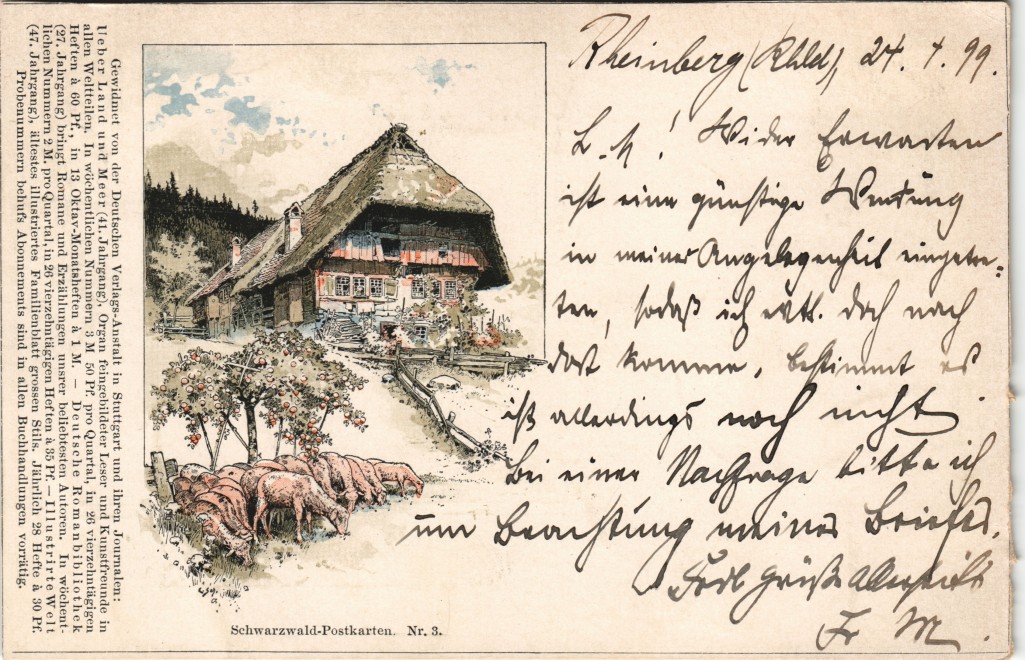 Gewidmet von der Deutschen Verlags-Anstalt in Stuttgart und ihren Journalen:
Ueber Land und Meer (41. Jahrgang), Organ feingebildeter Leser und Kunstfreunde in
allen Weltteilen. In wöchentlichen Nummern 3 M 50 Pf. pro Quartal, in 26 vierzehntägigen
Heften à 60 Pf., in 13 Oktav-Monatsheften à 1 M. — Deutsche Romanbibliothek
(27. Jahrgang) bringt Romane und Erzählungen unsrer beliebtesten Autoren. In wöchent-
lichen Nummern 2 M. pro Quartal, in 26 vierzehntägigen Heften à 35 Pf. — Illustrirte Welt
(47. Jahrgang), ältestes illustriertes Familienblatt grossen Stils. Jährlich 28 Hefte à 30 Pf.
Probenummern behufs Abonnements sind in allen Buchhandlungen vorrätig.
Rheinberg (Rhld), 24. 4. 99.
L. A! Wider Erwarten
ist eine günstige Wendung
in meiner Angelegenheit eingetre=
ten, sodaß ich evtl. doch noch
dort komme, bestimmt es
ist allerdings noch nicht.
Bei einer Nachfrage bitte ich
um Beachtung meines Briefes.
Grüße allerseits
Fr M.
Schwarzwald-Postkarten. Nr. 3.